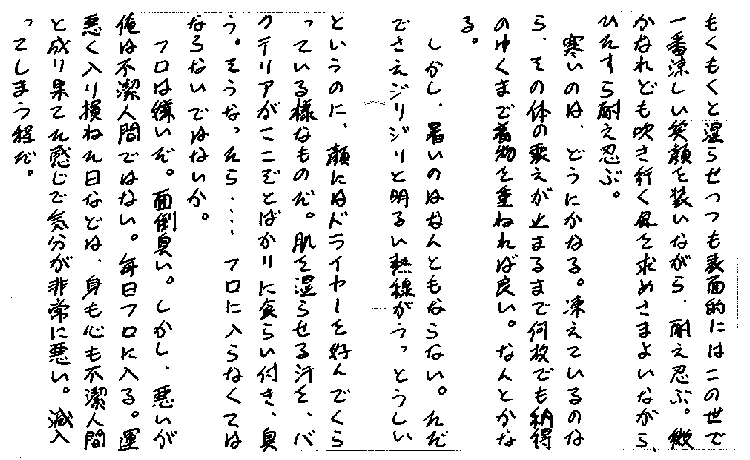 もくもくと湿らせつつも表面的にはこの世で
一番涼しい笑顔を装いながら、耐え忍ぶ。微
かなれども吹き行く風を求めさまよいながら、
ひたすら耐え忍ぶ。
　寒いのは、どうにかなる。凍えているのな
ら、その体の震えが止まるまで何枚でも納得
のゆくまで着物を重ねれば良い。なんとかな
る。
　しかし、暑いのはなんともならない。ただ
でさえジリジリと明るい熱線がうっとうしい
というのに、顔にはドライヤーを好んでくら
っている様なものだ。肌を湿らせる汗を、バ
クテリアがここぞとばかりに食らい付き、臭
う。そうなったら・・・　フロに入らなくては
ならないではないか。
　フロは嫌いだ。面倒臭い。しかし、悪いが
俺は不潔人間ではない。毎日フロに入る。運
悪く入り損ねた日などは、身も心も不潔人間
と成り果てた感じで気分が非常に悪い。滅入
ってしまう程だ。